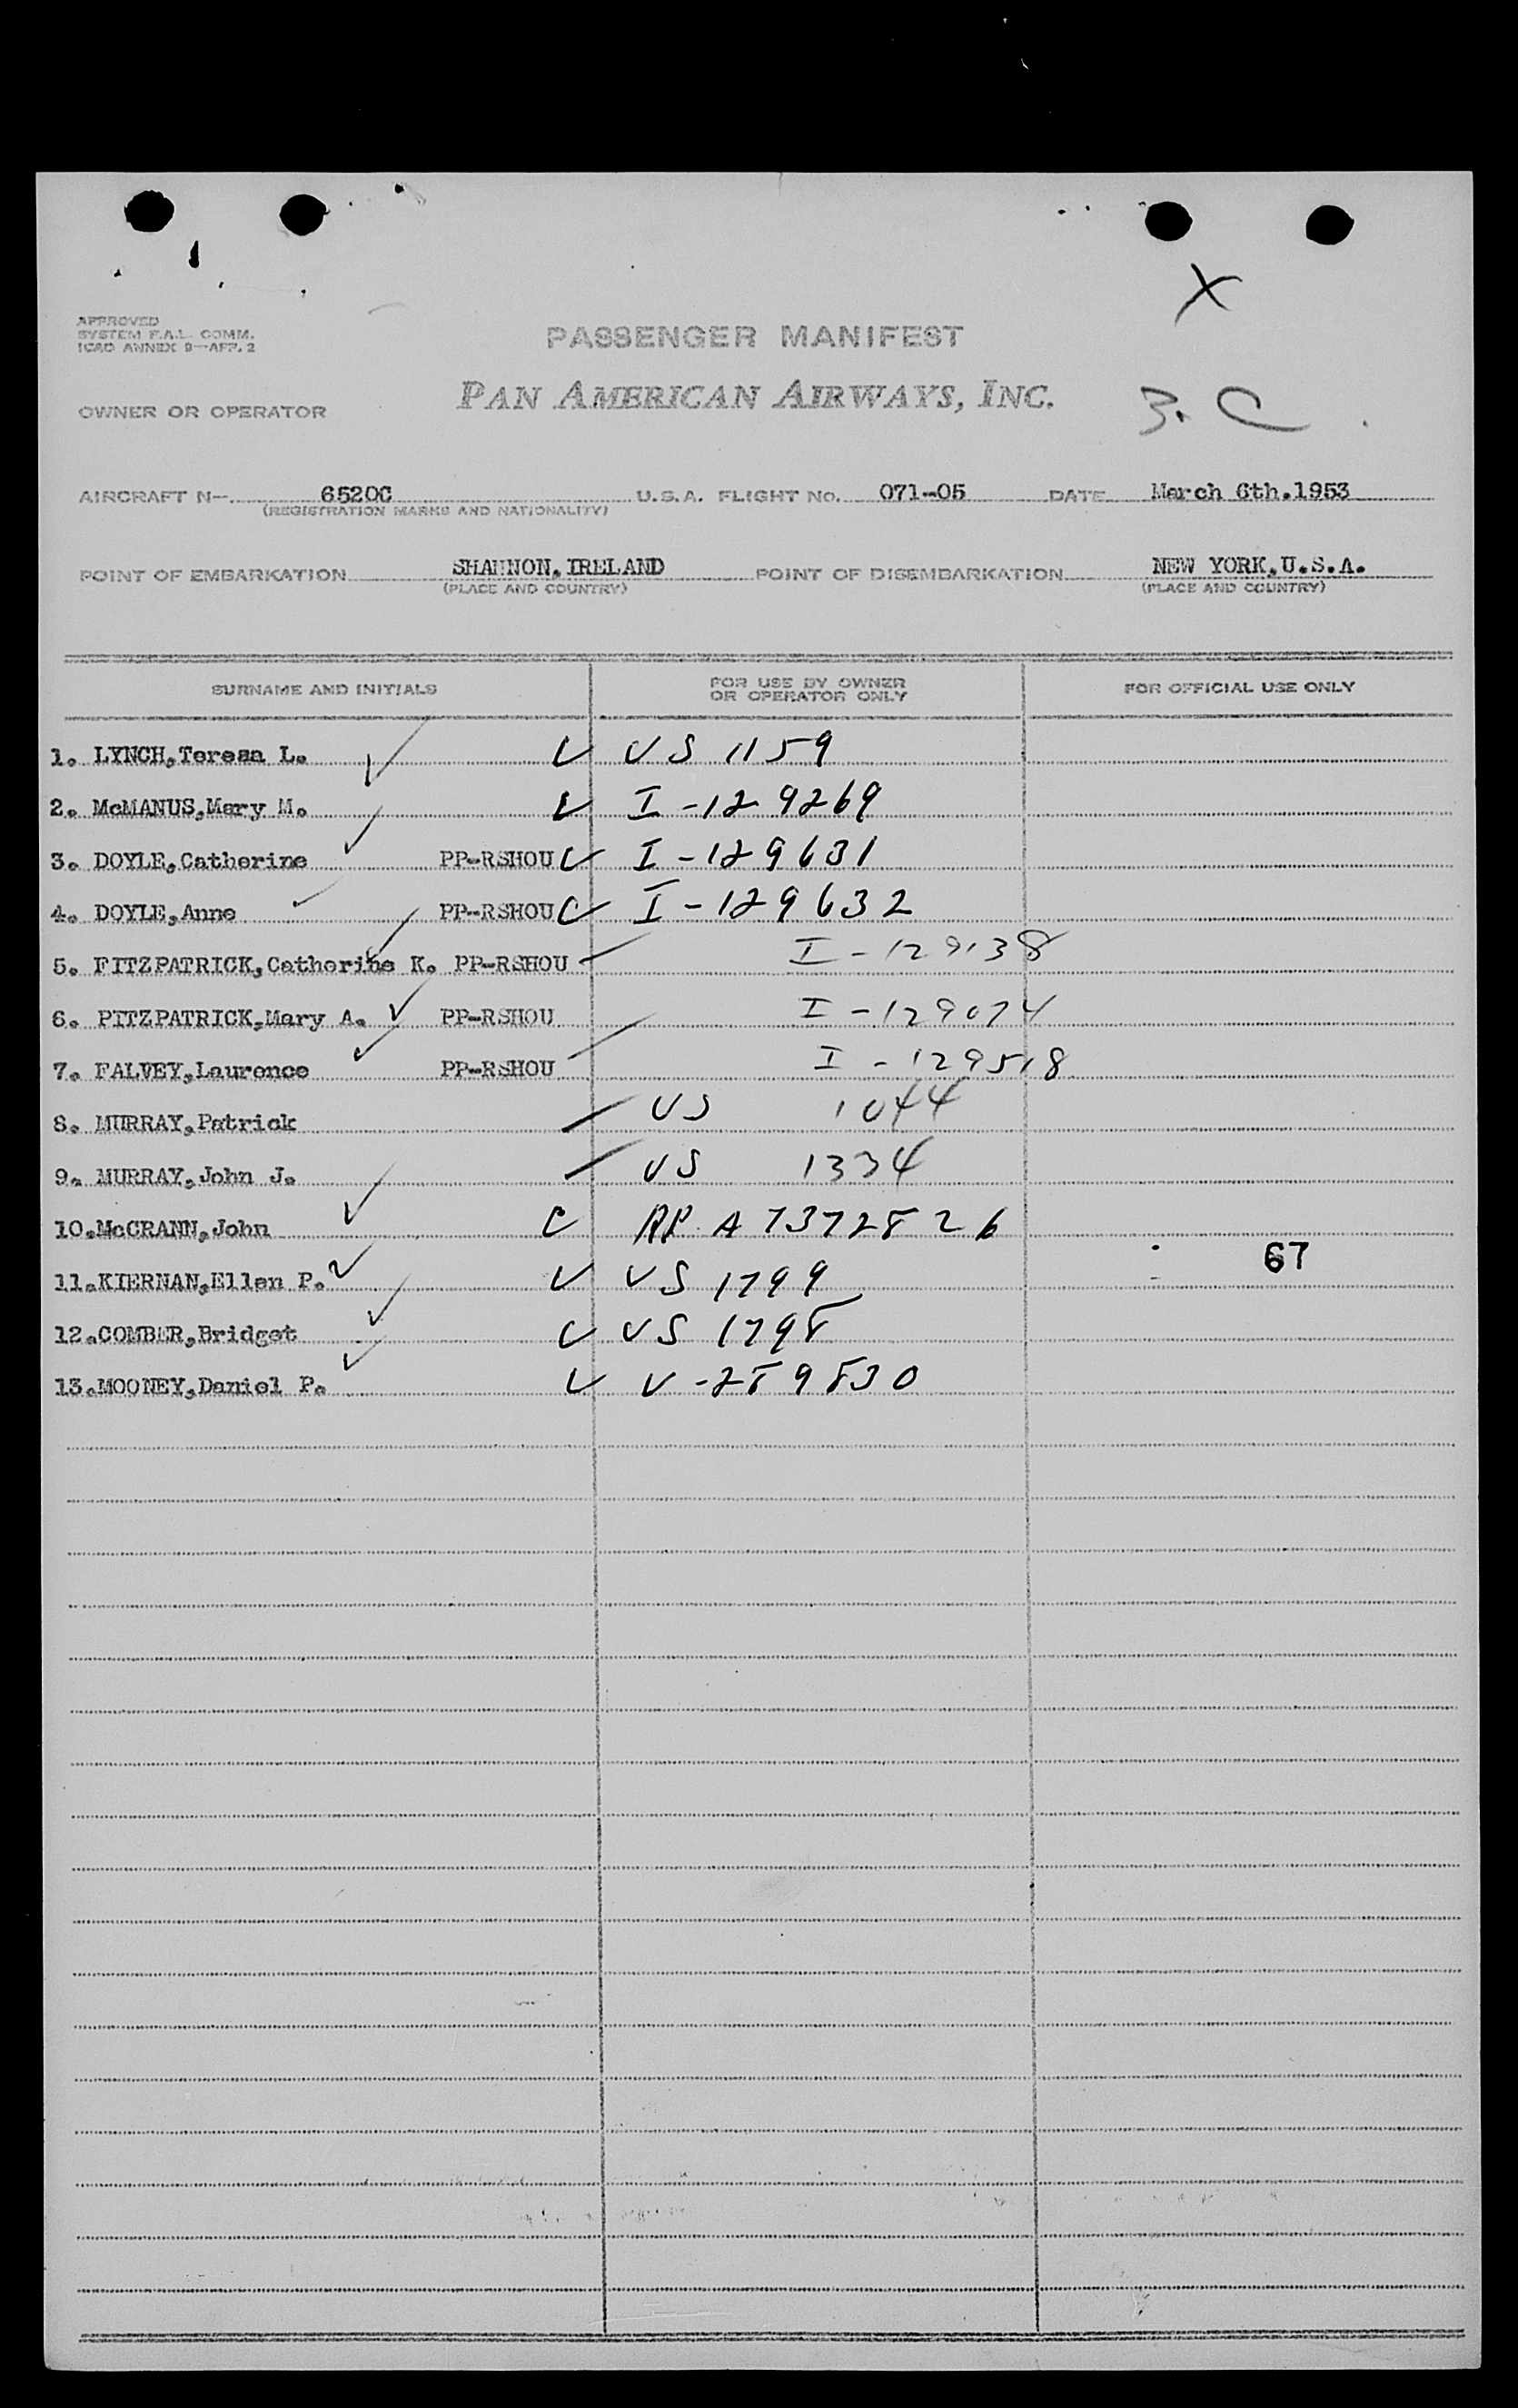 X
APPROVED
SYSTEM F.A.L. COMM.
ICAO ANNEX 9—APP. 2
PASSENGER MANIFEST
OWNER OR OPERATOR PAN AMERICAN AIRWAYS, INC. 3. C
AIRCRAFT N— 6520C U.S.A. FLIGHT No. 071-05 DATE March 6th.1953
(REGISTRATION MARKS AND NATIONALITY)
POINT OF EMBARKATION SHANNON, IRELAND POINT OF DISEMBARKATION NEW YORK, U.S.A.
(PLACE AND COUNTRY) (PLACE AND COUNTRY)
SURNAME AND INITIALS FOR USE BY OWNER OR OPERATOR ONLY FOR OFFICIAL USE ONLY
1. LYNCH, Teresa L. VS 1159
2. McMANUS, Mary M. I-129269
3. DOYLE, Catherine PP-RSHOU I-129631
4. DOYLE, Anne PP-RSHOU I-129632
5. FITZPATRICK, Catherine K. PP-RSHOU I-129138
6. PITZPATRICK, Mary A. PP-RSHOU I-129074
7. FALVEY, Laurence PP-RSHOU I-129518
8. MURRAY, Patrick VS 1044
9. MURRAY, John J. VS 1334
10. McCRANN, John A7372826
67
11. KIERNAN, Ellen P. VS 1799
12. COMBER, Bridget VS 1798
13. MOONEY, Daniel P. V-289830